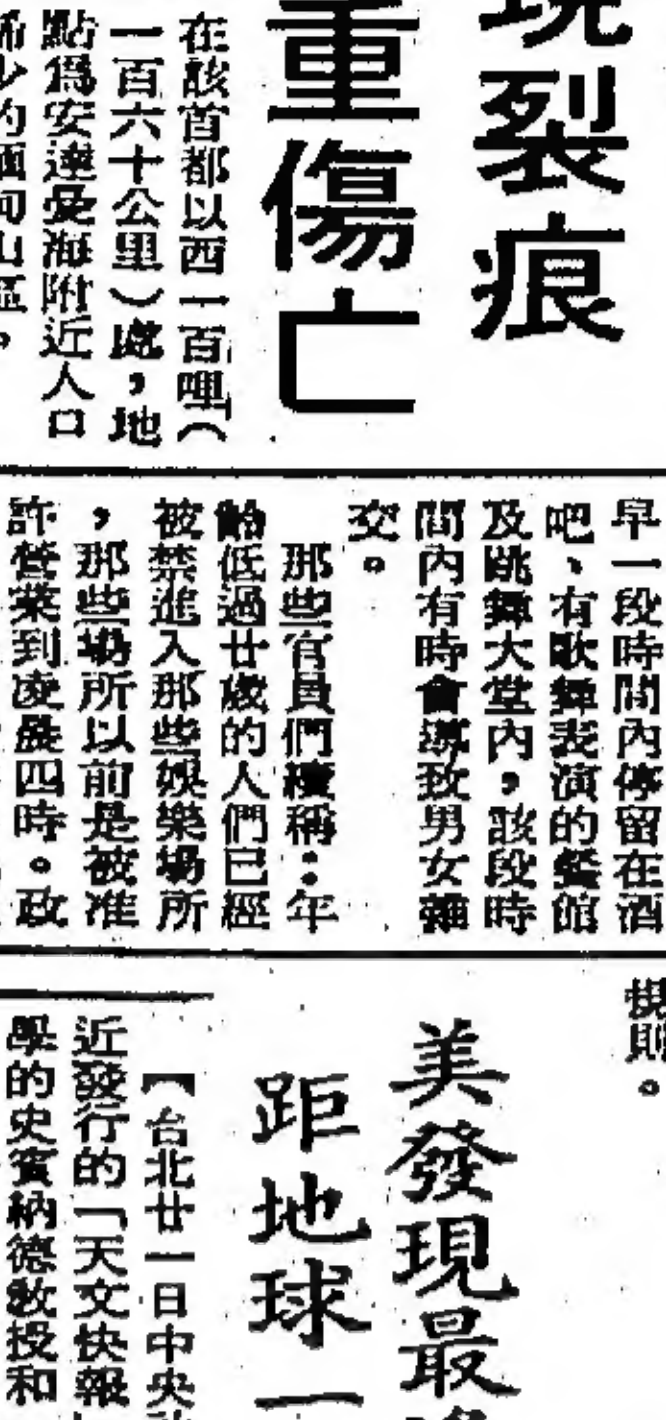 現裂痕
重傷亡
在該首都以西一百哩（
一百六十公里）處，地
點爲安達曼海附近人口
稀少的緬甸山區，
早一段時間內停留在酒
吧、有歌舞表演的餐館
及跳舞大堂內，該段時
間內有時會導致男女雜
交。
那些官員們續稱：年
齡低過廿歲的人們已經
被禁進入那些娛樂場所
，那些場所以前是被准
許營業到凌晨四時。政
規則。
美發現最
距地球一
【台北廿一日中央
近發行的「天文快報
學的史賓納德教授和